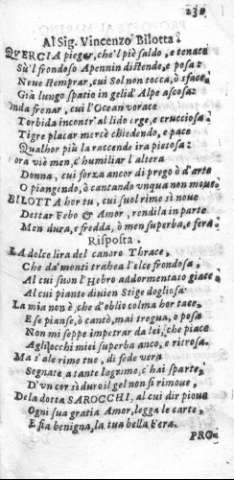 230
Al Sig. Vincenzo Bilotta.
QVERCIA piegar, che'l piè saldo, e tenace
Sù'l frondoso Apennin distende, e posa:
Neue stemprar, cui Sol non tocca, ò sface
Già lungo spatio in gelid' Alpe ascosa:
Onda frenar, cui l'Ocean vorace
Torbida incontr' al lido erge, e crucciosa
Tigre placar mercè chiedendo, e pace
Qualhor più la raccende ira pietosa:
ora viè men, ch'humiliar l'altera
Donna, cui forza ancor di prego ò d'arte
O piangendo, ò cantando vnqua non moue.
BILOTTA hor tu, cui suol rime sì noue
Dettar Febo & Amor, rendila in parte
Men dura, e fredda, ò men superba, e fera
Risposta.
LA dolce lira del canoro Thrace,
Che da' monti trahea l'elce frondosa;
Al cui suon l'Hebro addormentato giace
Al cui pianto diuien Stige dogliosa
La mia non è, che d'oblio colma hor tace,
E se pianse, ò cantò, mai tregua, o posa
Non mi seppe impetrar da lei, che piace
Agli occhi miei superba anco, e ritrosa.
Ma s'ale rime tue, di fede vera
Segnate a tante lagrime, c'hai sparte,
D'vn cor sì duro il gel non si rimoue,
De la dotta SAROCCHI, al cui dir pioue
Ogni sua gratia Amor, legga le carte,
E sia benigna, la tua bella Fera.
PRO-